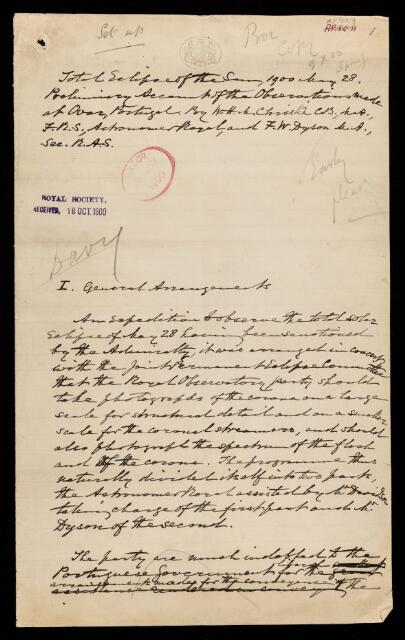 Set up
AP.80.11
1
Proc
Copy
Total Eclipse of the Sun, 1900 May 28.
Preliminary Account of the Observations made
at Ovar, Portugal. By W. H. M. Christie C.B., M.A.,
F.R.S., Astronomer Royal, and F. W. Dyson M.A.,
Sec. R.A.S.
Early
please
1900
ROYAL SOCIETY,
RECEIVED, 18 OCT. 1900
Davy
I. General Arrangements
An Expedition to observe the total solar
Eclipse of May 28 having been sanctioned
by the Admiralty, it was arranged in concert
with the Joint Permanent Eclipse Committee
that the Royal Observatory party should
take photographs of the corona on a large
scale for structural detail and on a smaller
scale for the coronal streamers, and should
also photograph the spectrum of the flash
and of the corona. The programme thus
naturally divided itself into two parts,
the Astronomer Royal assisted by Mr Davidson
taking charge of the first part and Mr
Dyson of the second.
The party are much indebted to the
Portuguese Government for the
arrangements made for the conveyance
the